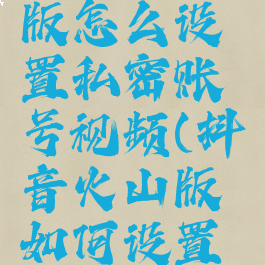 版怎么设
置私密账
号视频(抖
音火山版
如何设置